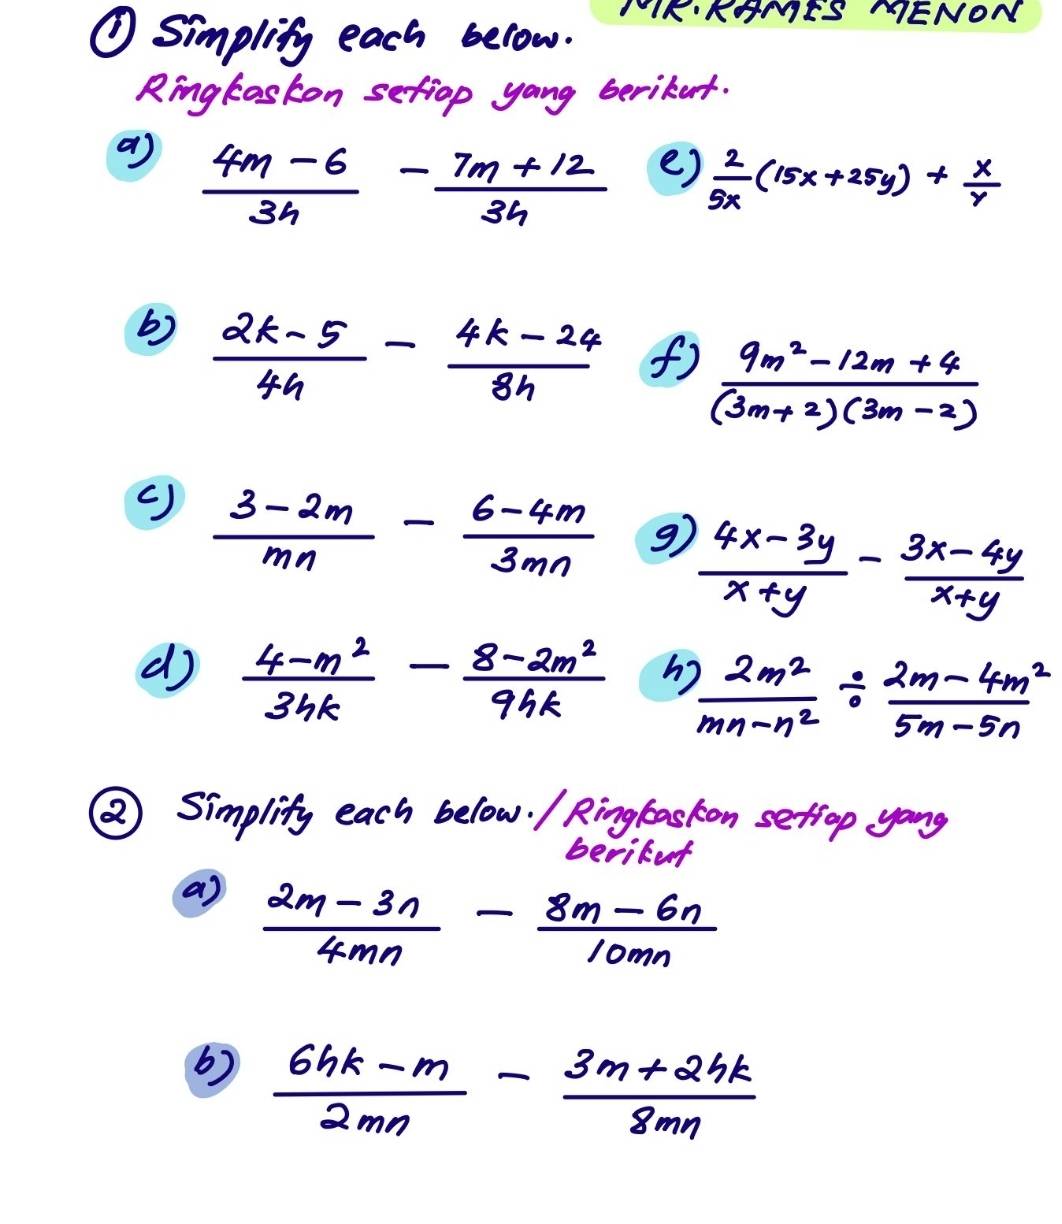 MR. RAMES MENON
① Simplify each below.
Ringkaskan setiap yang berikut.
a) (4m - 6)/3h - (7m + 12)/3h
e) 2/5x (15x + 25y) + x/y
b) (2k - 5)/4h - (4k - 24)/8h
f) (9m² - 12m + 4)/((3m + 2)(3m - 2))
c) (3 - 2m)/mn - (6 - 4m)/3mn
g) (4x - 3y)/(x + y) - (3x - 4y)/(x + y)
d) (4 - m²)/3hk - (8 - 2m²)/9hk
h) 2m²/(mn - n²) ÷ (2m - 4m²)/(5m - 5n)
② Simplify each below. / Ringkaskan setiap yang
berikut
a) (2m - 3n)/4mn - (8m - 6n)/10mn
b) (6hk - m)/2mn - (3m + 2hk)/8mn